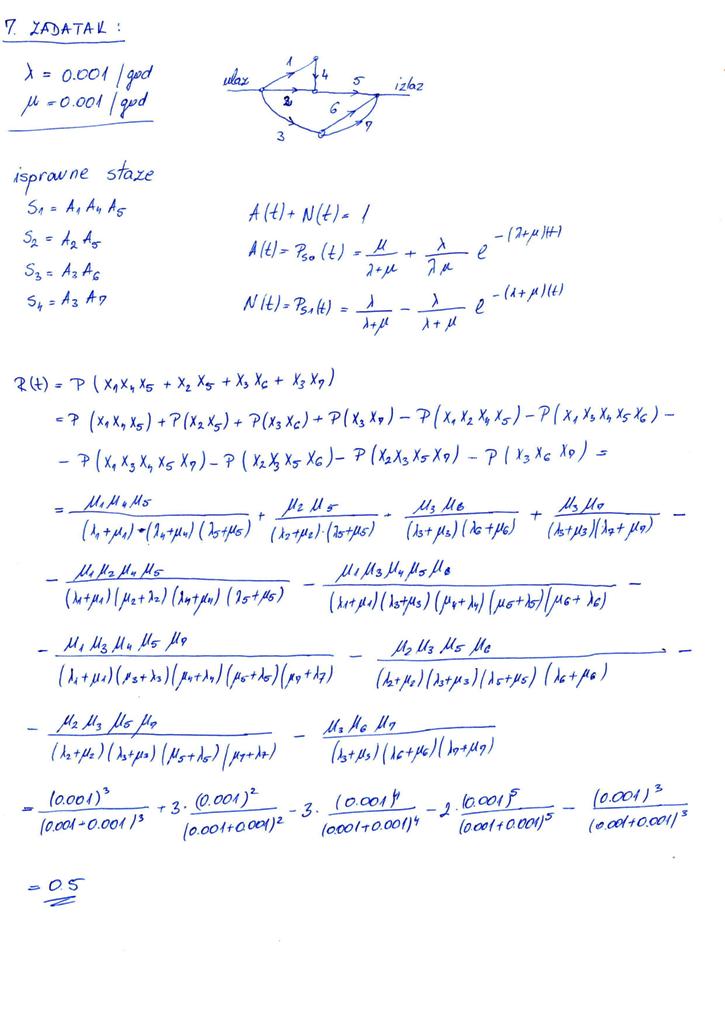 7. ZADATAK :
λ = 0.001 /god
μ = 0.001 /god
ulaz 1 4 5 izlaz
2 6
3 7
ispravne staze
S1 = A1 A4 A5
S2 = A2 A5
S3 = A3 A6
S4 = A3 A7
A(t) + N(t) = 1
A(t) = PS0(t) = μ/(λ+μ) + λ/(λ μ) e^-(λ+μ)(t)
N(t) = PS1(t) = λ/(λ+μ) - λ/(λ+μ) e^-(λ+μ)(t)
R(t) = P (X1X4X5 + X2X5 + X3X6 + X3X7)
= P (X1X4X5) + P(X2X5) + P(X3X6) + P(X3X7) - P(X1X2X4X5) - P(X1X3X4X5X6) -
- P(X1X3X4X5X7) - P(X2X3X5X6) - P(X2X3X5X7) - P(X3X6X7) =
= μ1μ4μ5/((λ1+μ1)·(λ4+μ4)(λ5+μ5)) + μ2μ5/((λ2+μ2)·(λ5+μ5)) + μ3μ6/((λ3+μ3)(λ6+μ6)) + μ3μ7/((λ3+μ3)(λ7+μ7)) -
- μ1μ2μ4μ5/((λ1+μ1)(μ2+λ2)(λ4+μ4)(λ5+μ5)) - μ1μ3μ4μ5μ6/((λ1+μ1)(λ3+μ3)(μ4+λ4)(μ5+λ5)(μ6+λ6)) -
- μ1μ3μ4μ5μ7/((λ1+μ1)(μ3+λ3)(μ4+λ4)(μ5+λ5)(μ7+λ7)) - μ2μ3μ5μ6/((λ2+μ2)(λ3+μ3)(λ5+μ5)(λ6+μ6)) -
- μ2μ3μ5μ7/((λ2+μ2)(λ3+μ3)(μ5+λ5)(μ7+λ7)) - μ3μ6μ7/((λ3+μ3)(λ6+μ6)(λ7+μ7))
= (0.001)^3/(0.001+0.001)^3 + 3·(0.001)^2/(0.001+0.001)^2 - 3·(0.001)^4/(0.001+0.001)^4 - 2·(0.001)^5/(0.001+0.001)^5 - (0.001)^3/(0.001+0.001)^3
= 0.5